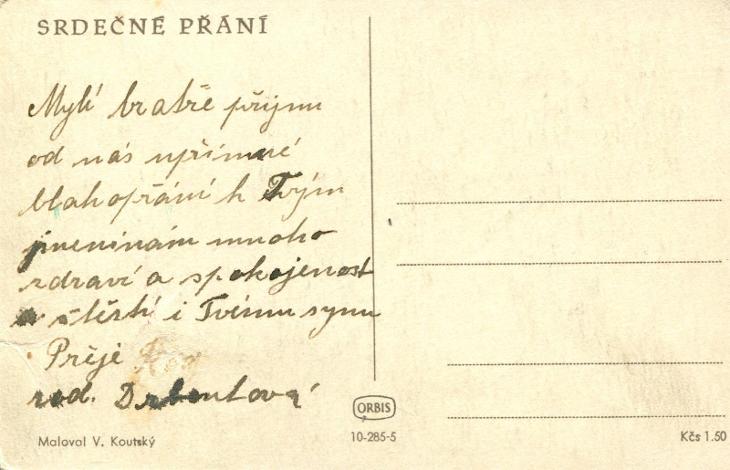 SRDEČNÉ PŘÁNÍ
Mylí bratře přijmu
od nás upřímné
blahopřání k Tvým
jmeninám mnoho
zdraví a spokojenost
a štěstí i Tvému synu
Přeje
rod.
ORBIS
Maloval V. Koutský
10-285-5
Kčs 1.50